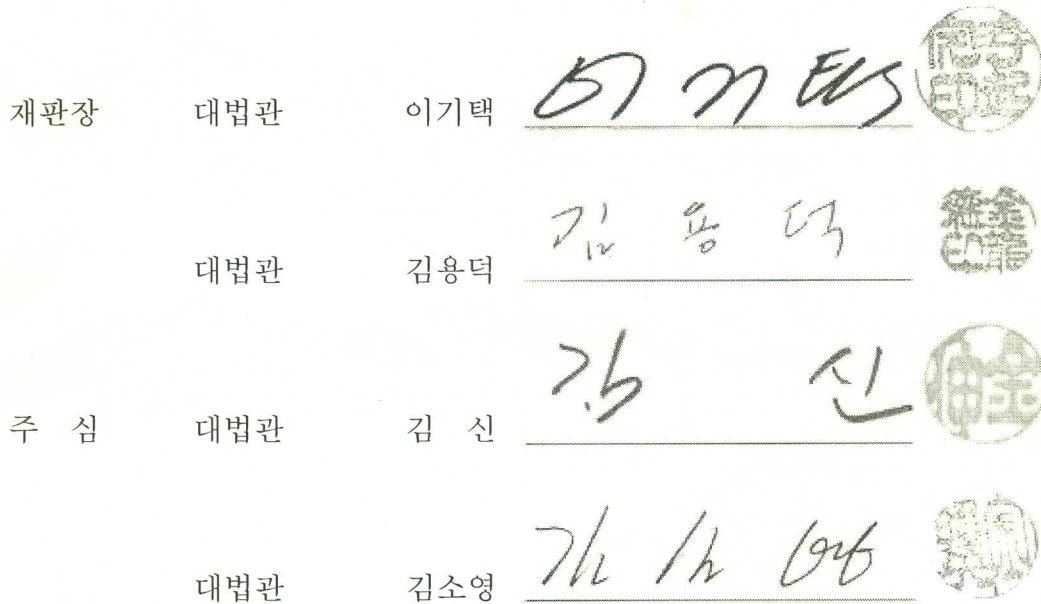 재판장 대법관 이기택 이기택
대법관 김용덕 김용덕
주 심 대법관 김 신 김 신
대법관 김소영 김소영